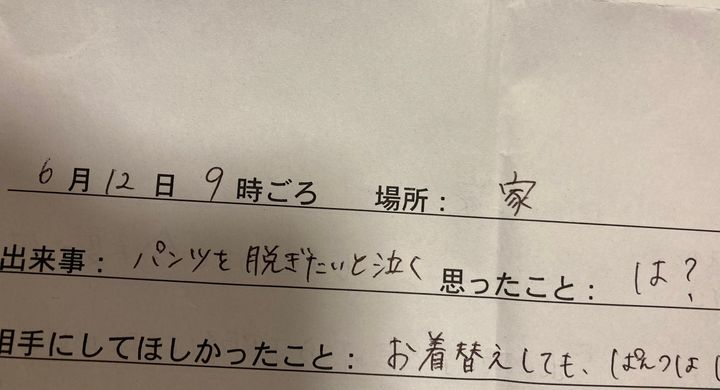 6月12日 9時ごろ 場所： 家
出来事： パンツを脱ぎたいと泣く 思ったこと： は？
相手にしてほしかったこと： お着替えしても、ぱんつは